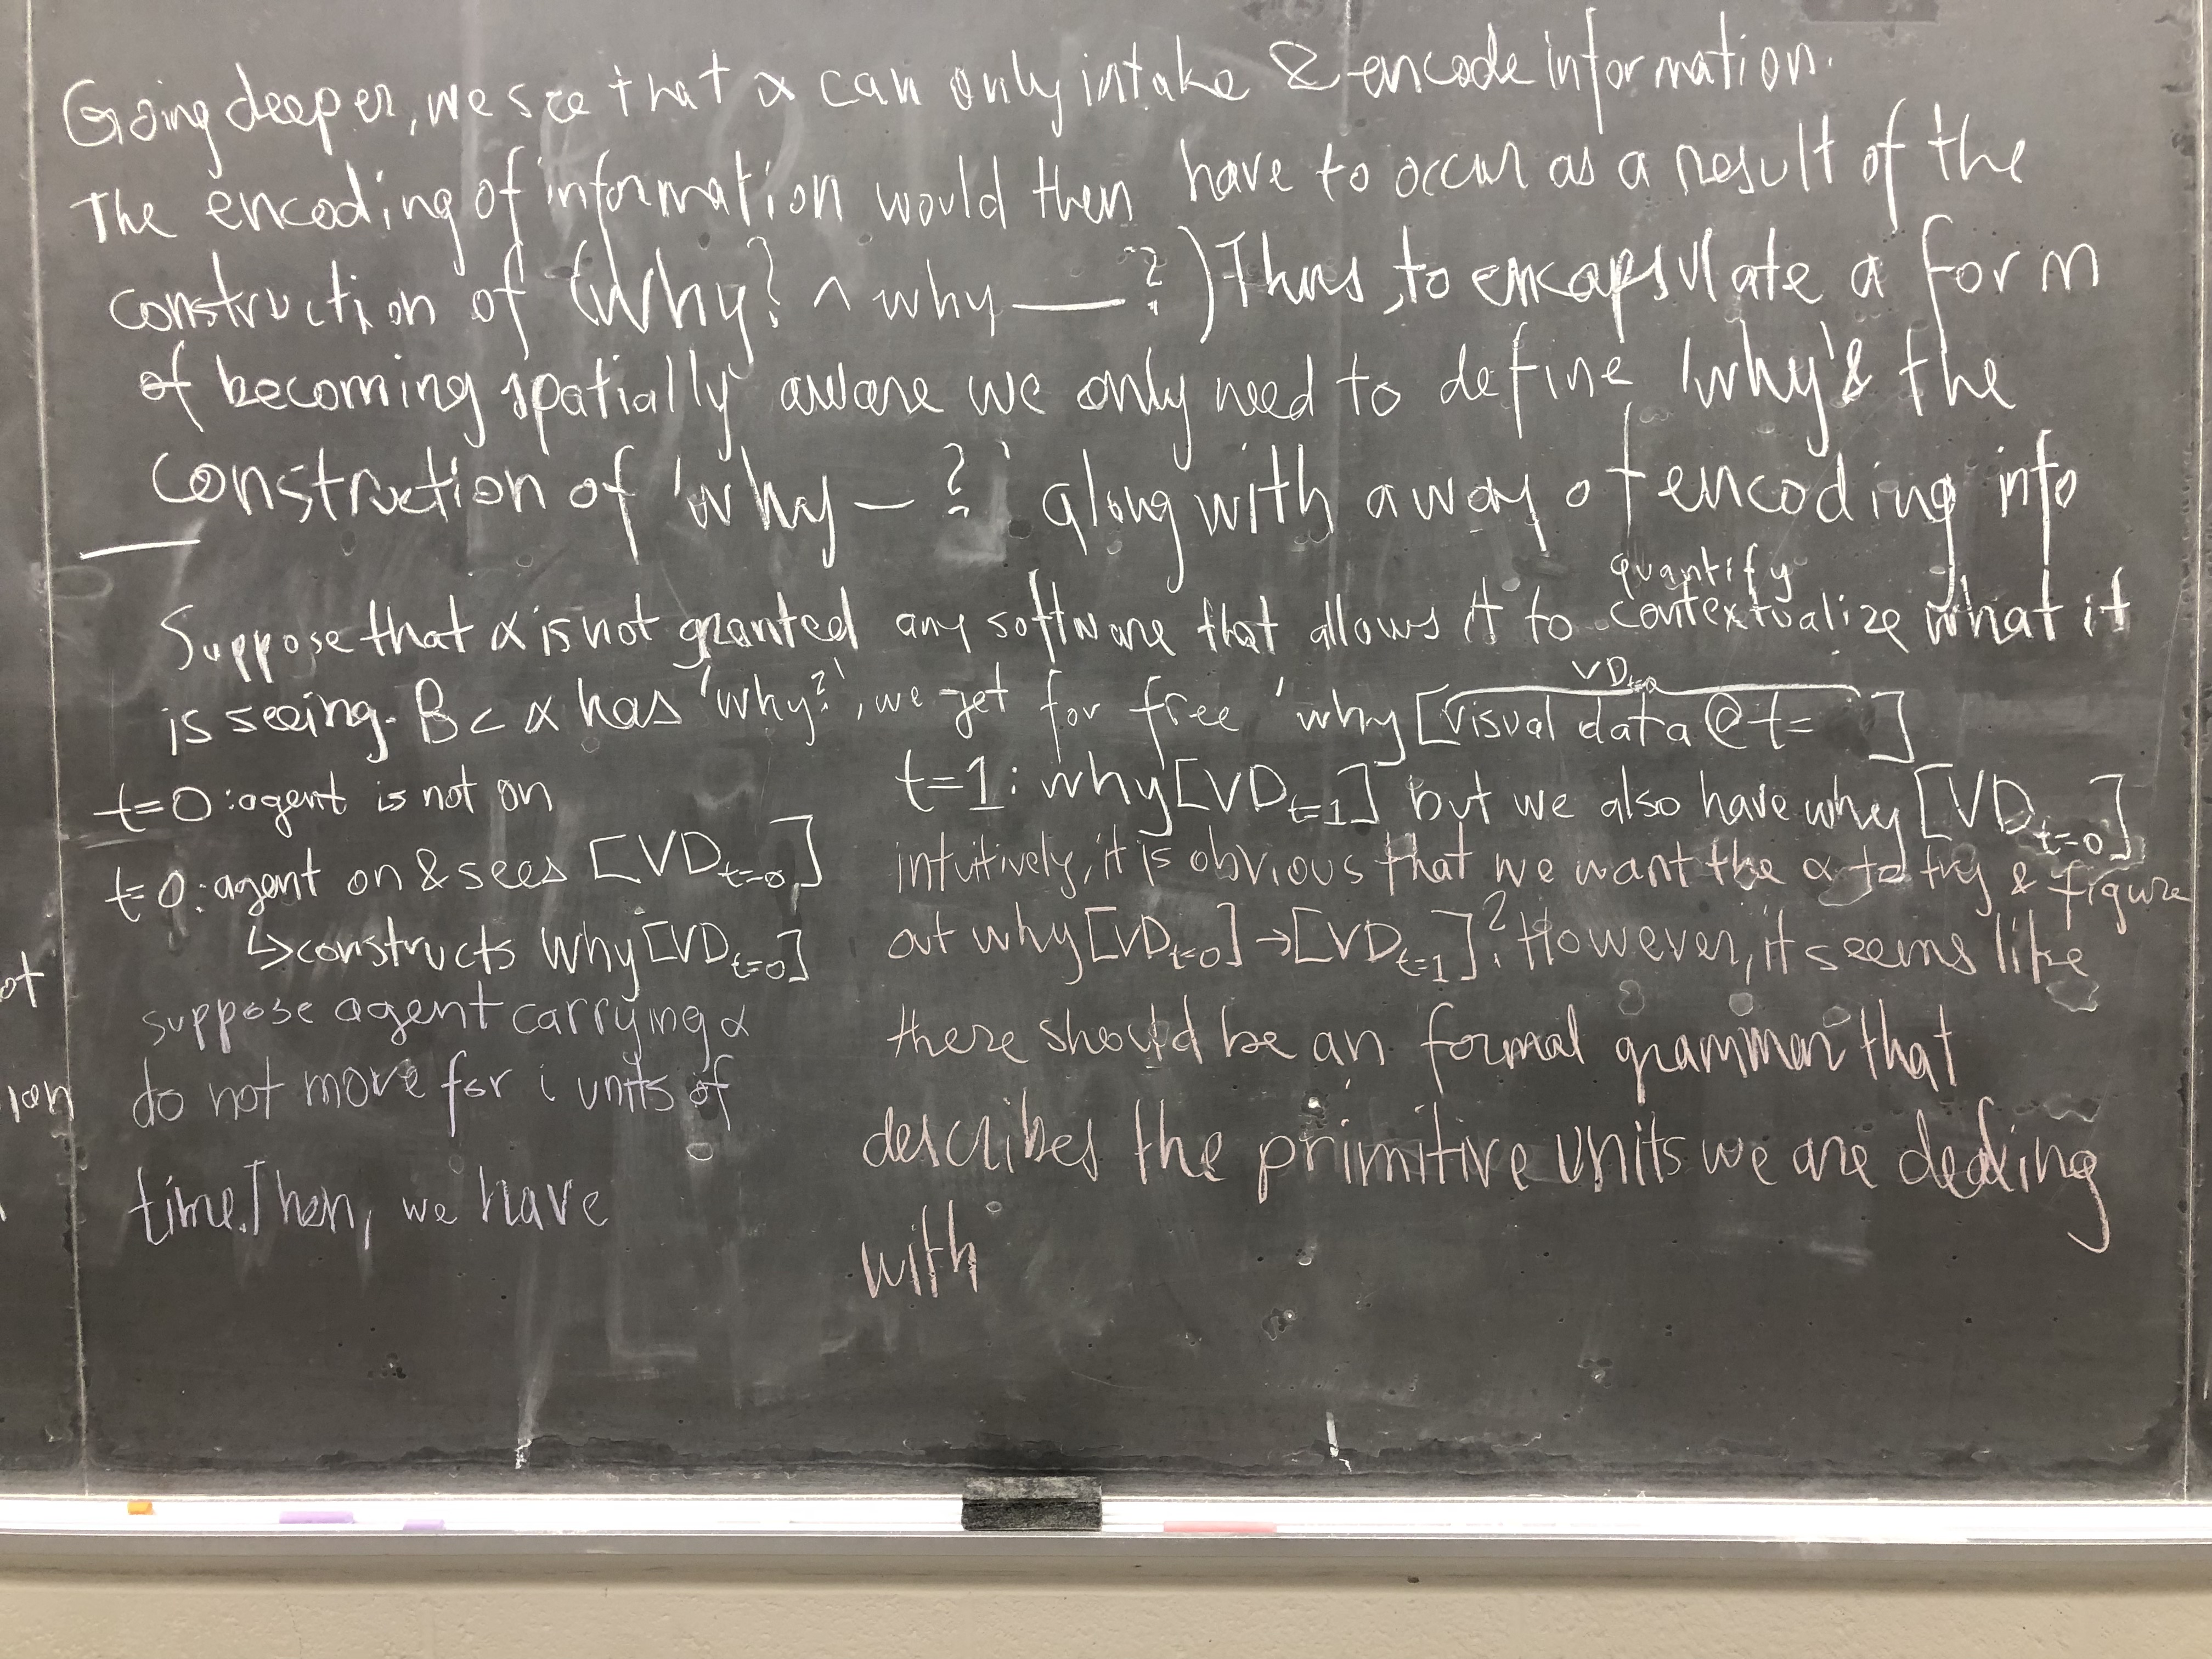 Going deeper, we see that α can only intake & encode information.
The encoding of information would then have to occur as a result of the
construction of (Why? ∧ why ___?) Thus, to encapsulate a form
of becoming spatially aware we only need to define 'why' & the
construction of 'why — ?' along with a way of encoding info
quantify
Suppose that α is not granted any software that allows it to contextualize what it
VD t=0
is seeing. B < α has 'why?', we get for free 'why [visual data @ t= ]
t=0: agent is not on
t=0: agent on & sees [VD t=0]
↳ constructs why [VD t=0]
suppose agent carrying α
do not move for i units of
time. Then, we have
t=1: why [VD t=1] but we also have why [VD t=0]
intuitively, it is obvious that we want the α to try & figure
out why [VD t=0] → [VD t=1]? However, it seems like
there should be an formal grammar that
describes the primitive units we are dealing
with
ot
ion